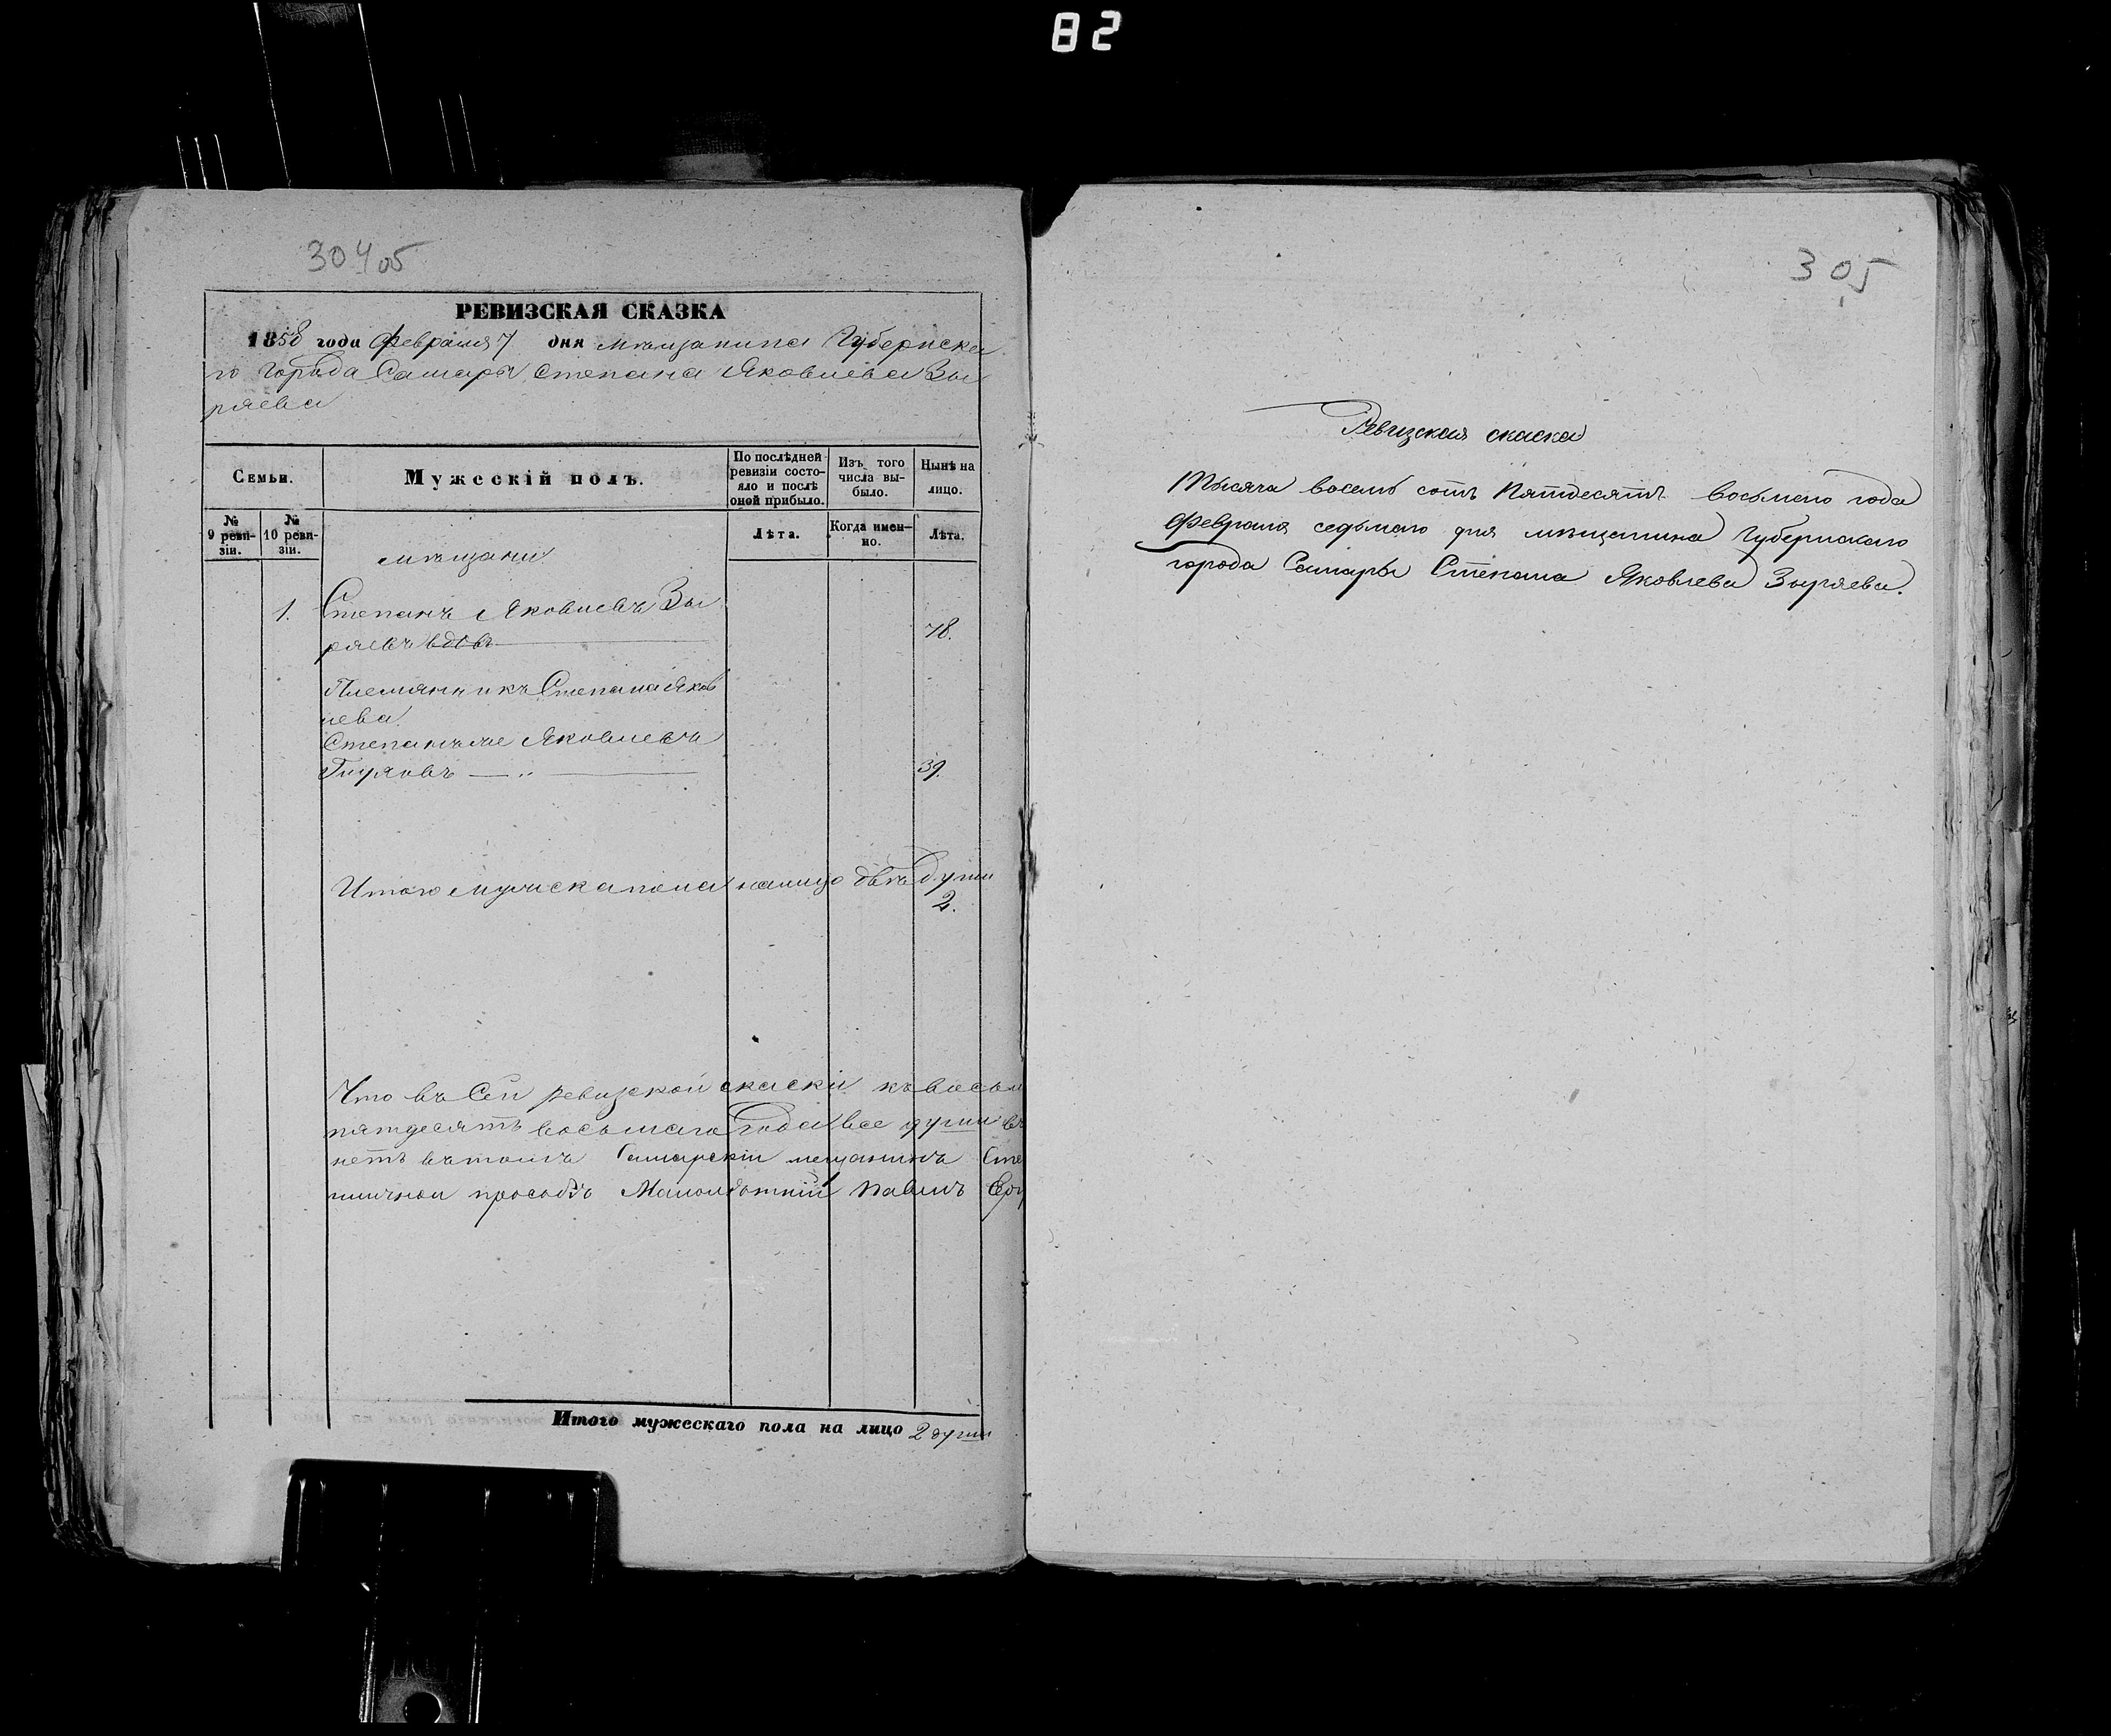 82
304об
РЕВИЗСКАЯ СКАЗКА
1858 года Февраля 7 дня мѣщанина Губернска
го города Самары Степана Яковлева Зы
ряева
Семьи.
Мужескій полъ.
По послѣдней ревизіи состояло и послѣ оной прибыло.
Изъ того числа выбыло.
Нынѣ на лицо.
№ 9 ревизіи.
№ 10 ревизіи.
Лѣта.
Когда именно.
Лѣта.
мѣщани
1. Степанъ Яковлевъ Зы
ряевъ вдовъ 78.
Племянникъ Степана Яков
лева
Степанъ же Яковлевъ
39.
Итого мужска пола налицо двѣ души
2.
Что въ сей ревизской скаски
пятдесятъ восьмаго года все души
нетъ въ томъ Самарскій мещанинъ Сте
Павелъ
Итого мужескаго пола на лицо 2 души
305
Ревизская скаска
Тысяча восемь сотъ Пятдесятъ восьмого года
Февраля седьмаго дня мѣщанина Губернскаго
города Самары Степана Яковлева Зыряева.